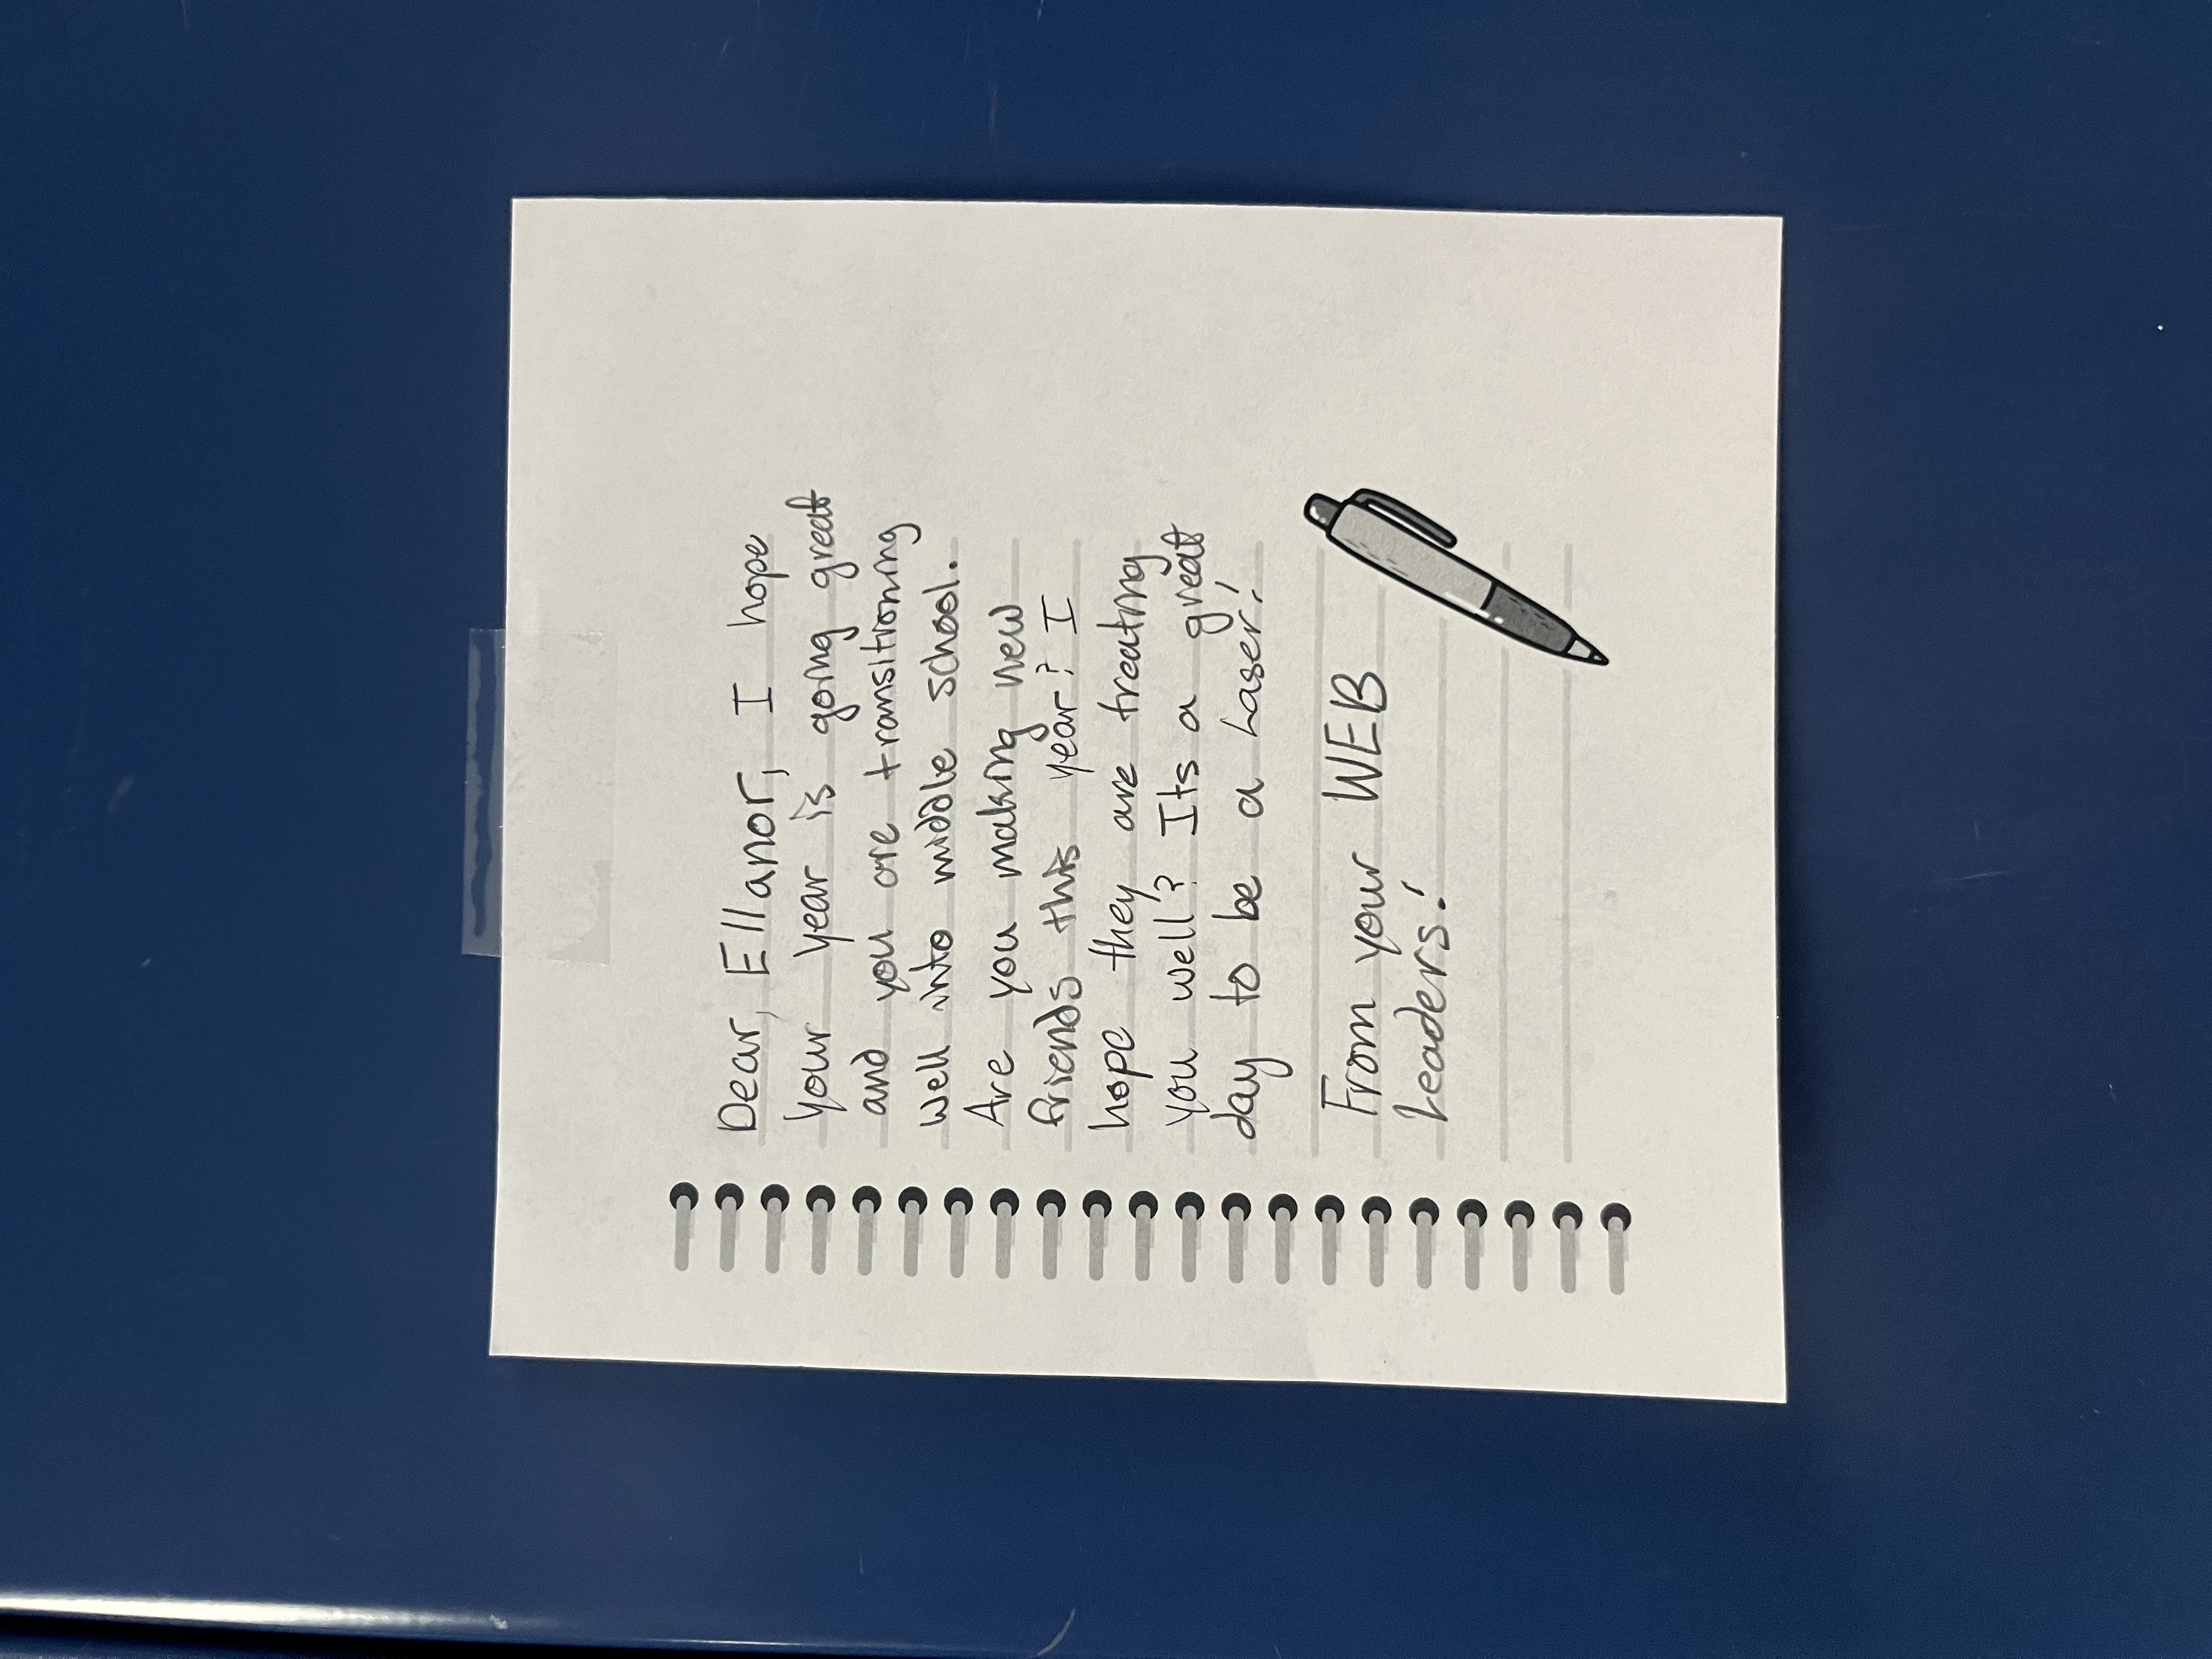 Dear, Ellanor, I hope
your year is going great
and you are transitioning
well into middle school.
Are you making new
friends this year? I
hope they are treating
you well? Its a great
day to be a Laser!
From your WEB
Leaders!